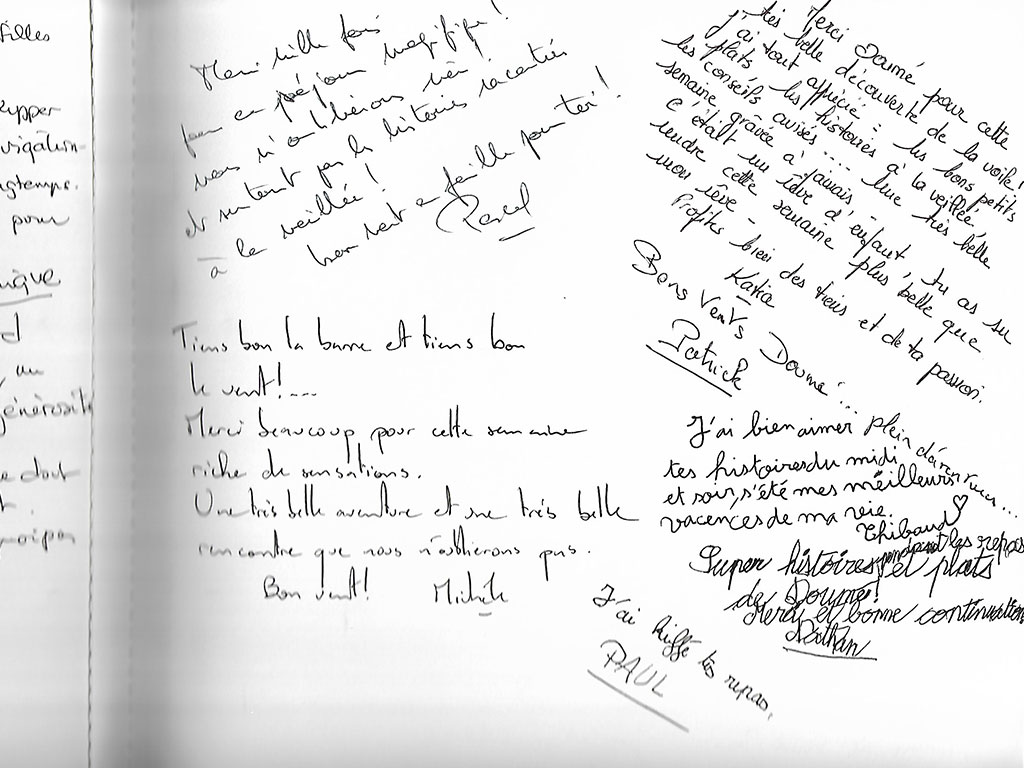 filles
upper
ngtemps.
pour
au
générosité
Merci mille fois
pour ce séjour magnifique!
nous n'oublierons rien!
et surtout pas les histoires racontées
à la veillée!
bon vent et faille pour toi!
Pascal
Tiens bon la barre et tiens bon
le vent!...
Merci beaucoup pour cette semaine
riche de sensations.
Une très belle aventure et une très belle
rencontre que nous n'oublierons pas.
Bon vent! Michèle
Merci Doumé pour cette
très belle découverte de la voile!
j'ai tout apprécié: les bons petits
plats, les histoires à la veillée,
les conseils avisés.... une très belle
semaine gravée à jamais -
c'était un rêve d'enfant, tu as su
rendre cette semaine plus belle que
mon rêve -
Profites bien des tiens et de ta passion.
Katia
Bons Vents Doumé!...
Patrick
J'ai bien aimer plein d'aventures...
tes histoires du midi
et soir, s'été mes meilleurs
vacances de ma vie.
Thibaud
Super histoires et plats pendant les repas
de Doumé!
Merci et bonne continuation
Nathan
J'ai kiffé tes repas.
PAUL